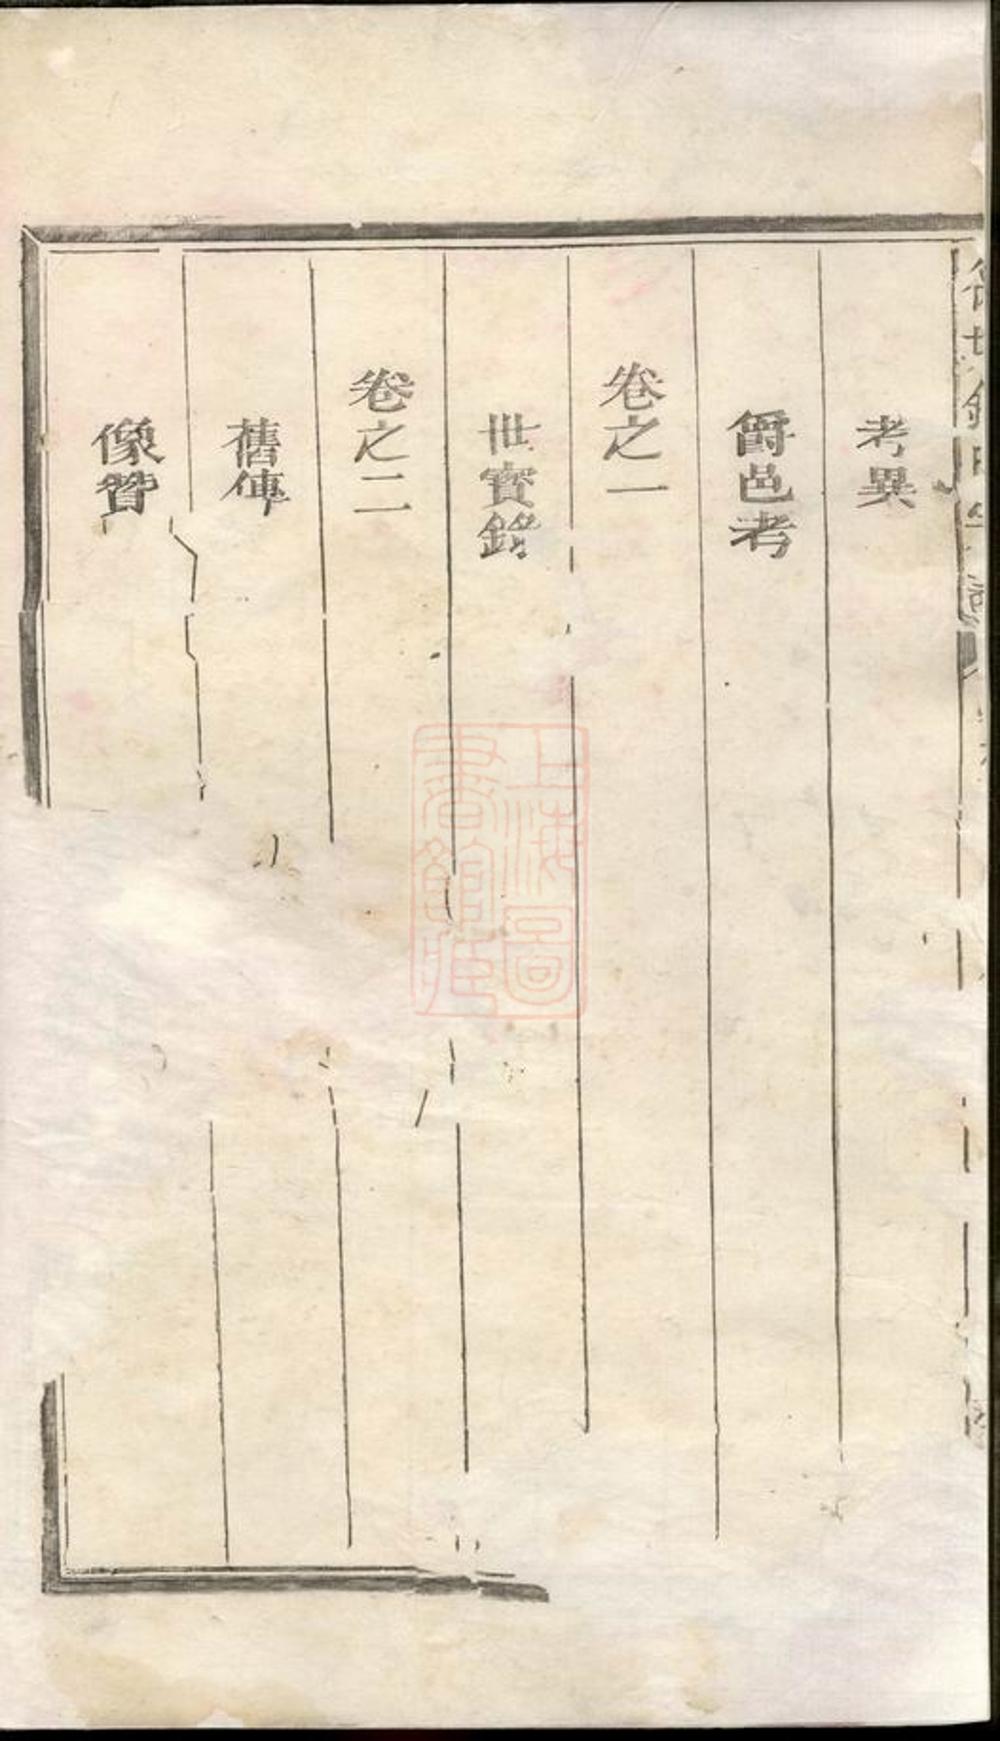 考異
爵邑考
卷之一
世實錄
卷之二
舊傳
像贊
上海圖
書館藏